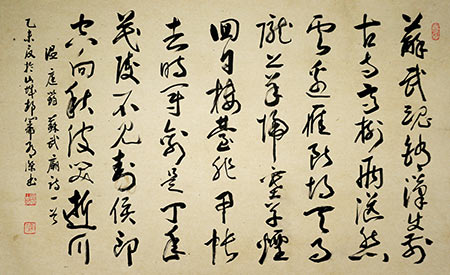 蘇武魂銷漢使前
古祠高樹兩茫然
雲邊雁斷胡天月
隴上羊歸塞草煙
回日樓臺非甲帳
去時冠劍是丁年
茂陵不見封侯印
空向秋波哭逝川
温庭筠 蘇武廟詩一首
乙未夏於山城 書